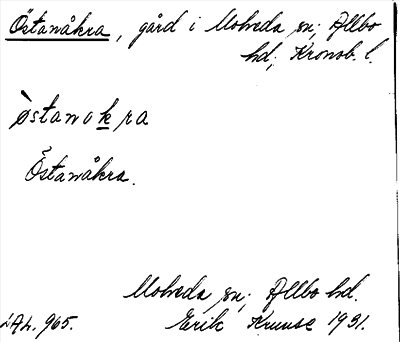 Östanåkra, gård i Moheda sn; Allbo
hd; Kronob. l.
östanokra
Östanåkra.
Moheda sn; Allbo hd.
LAL. 965. Erik Kruuse 1931.